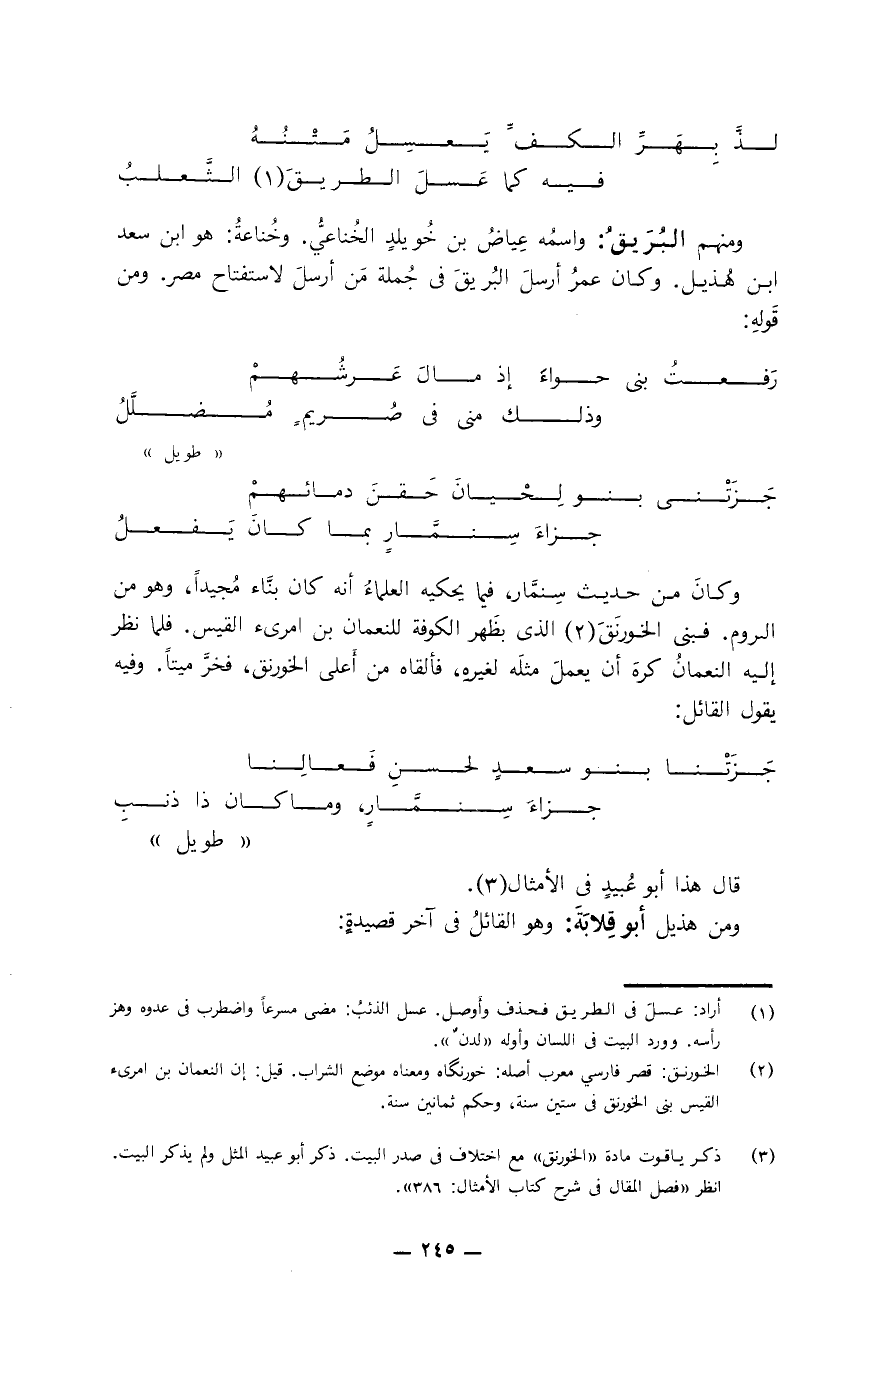 لذٌّ بِهَزِّ الكفِّ يَعسِلُ مَتْنُهُ
فيه كما عَسلَ الطريقَ(١) الثَّعلبُ
ومنهم البُرَيقُ: واسمُه عِياضُ بن خُويلدٍ الخُناعيُّ. وخُناعةُ: هو ابن سعد
ابن هُذيل. وكان عمرُ أرسلَ البُريقَ فى جُملة مَن أرسلَ لاستفتاح مصر. ومن
قَوله:
رَفعتُ بنى حواءَ إذ مالَ عَرشُهمْ
وذلك منى فى صُريمٍ مُضلَّلُ
« طويل »
جَزَتْنى بنو لِحْيانَ حَقنَ دمائهمْ
جزاءَ سِنمَّارٍ بما كانَ يَفعلُ
وكانَ من حديث سِنمَّار، فيما يحكيه العلماءُ أنه كان بنَّاء مُجيداً، وهو من
الروم. فبنى الخورنَقَ(٢) الذى بظَهر الكوفة للنعمان بن امرىء القيس. فلما نظر
إليه النعمانُ كرهَ أن يعملَ مثلَه لغيرهِ، فألقاه من أَعلى الخورنق، فخرَّ ميتاً. وفيه
يقول القائل:
جَزَتْنا بنو سعدٍ لحسنِ فَعالِنا
جزاءَ سِنمَّارٍ، وماكان ذا ذنبِ
« طويل »
قال هذا أبو عُبيدٍ فى الأمثال(٣).
ومن هذيل أبو قِلابَةَ: وهو القائلُ فى آخر قصيدةٍ:
(١) أراد: عسلَ فى الطريق فحذف وأوصل. عسل الذئبُ: مضى مسرعاً واضطرب فى عدوه وهز
رأسه. وورد البيت فى اللسان وأوله «لدنٌ».
(٢) الخورنق: قصر فارسي معرب أصله: خورنگاه ومعناه موضع الشراب. قيل: إن النعمان بن امرىء
القيس بنى الخورنق فى ستين سنة، وحكم ثمانين سنة.
(٣) ذكر ياقوت مادة «الخورنق» مع اختلاف فى صدر البيت. ذكر أبو عبيد المثل ولم يذكر البيت.
انظر «فصل المقال فى شرح كتاب الأمثال: ٣٨٦».
— ٢٤٥ —